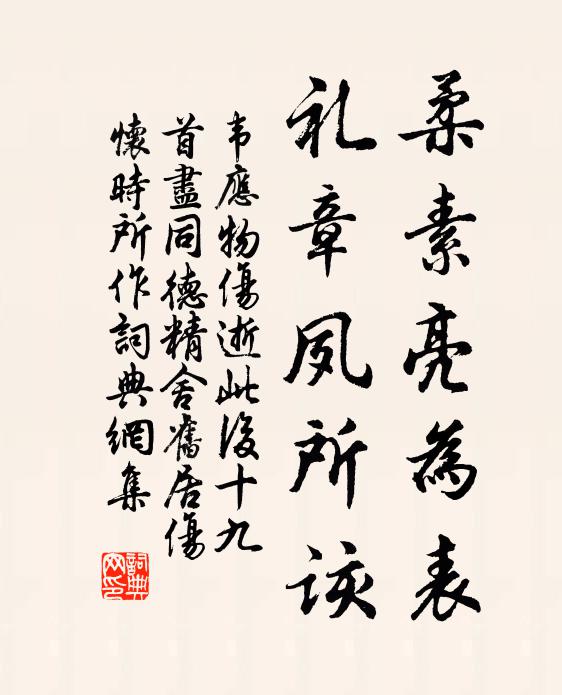 柔素亮為表
礼章夙所該
韦應物傷逝此後十九
首盡同德精舍舊居傷
懷時所作詞典網集
詞典
网印